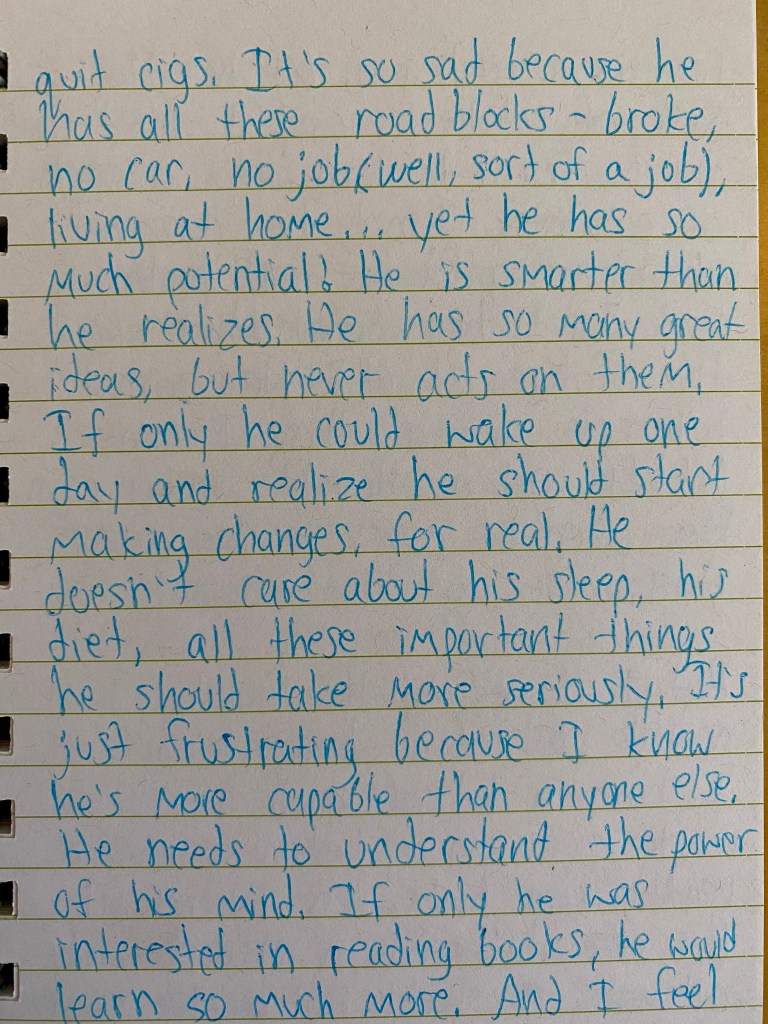 quit cigs. It's so sad because he
has all these road blocks - broke,
no car, no job (well, sort of a job),
living at home... yet he has so
much potential! He is smarter than
he realizes. He has so many great
ideas, but never acts on them.
If only he could wake up one
day and realize he should start
making changes, for real. He
doesn't care about his sleep, his
diet, all these important things
he should take more seriously. It's
just frustrating because I know
he's more capable than anyone else.
He needs to understand the power
of his mind. If only he was
interested in reading books, he would
learn so much more. And I feel